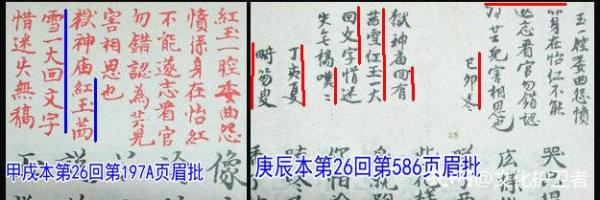 紅玉一腔委曲怨
憤係身在怡紅
不能遂志看官
勿錯認為芸兒
害相思也
獄神庙紅玉茜
雪一大回文字
惜迷失無稿
甲戌本第26回第197A页眉批
玉一腔委曲怨憤
身在怡红不能
遂志看官勿錯認
為芸兒害相思也
己卯冬
獄神廟回有
茜雪红玉一大
回文字惜迷
失無稿嘆嘆
丁亥夏
畸笏叟
庚辰本第26回第586页眉批
@文化护卫者